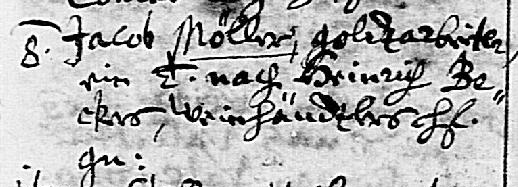 8. Jacob Möller, goldtarbeiter,
ein T. nach Heinrich Be„
ckers, weinhändlers hf.
gu: